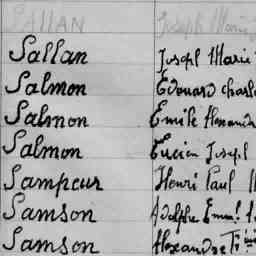 SALLAN Joseph Marie
Sallan Joseph Marie
Salmon Edouard Charle
Salmon Emile Alexandr
Salmon Lucien Joseph
Sampeur Henri Paul
Samson Adolphe Emm!
Samson Alexandre